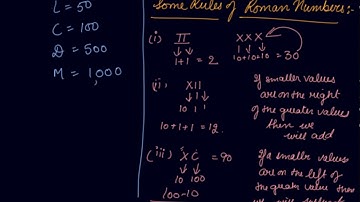 L = 50
C = 100
D = 500
M = 1,000
Some Rules of Roman Numbers:-
(i) II XXX
1+1 = 2 10+10+10 = 30
(ii) XII
10 1 1
10+1+1=12.
If smaller values
are on the right
of the greater values
then we
will add
(iii) XC = 90
10 100
100-10
If a smaller values
are on the left of
the greater value then
we will subtract